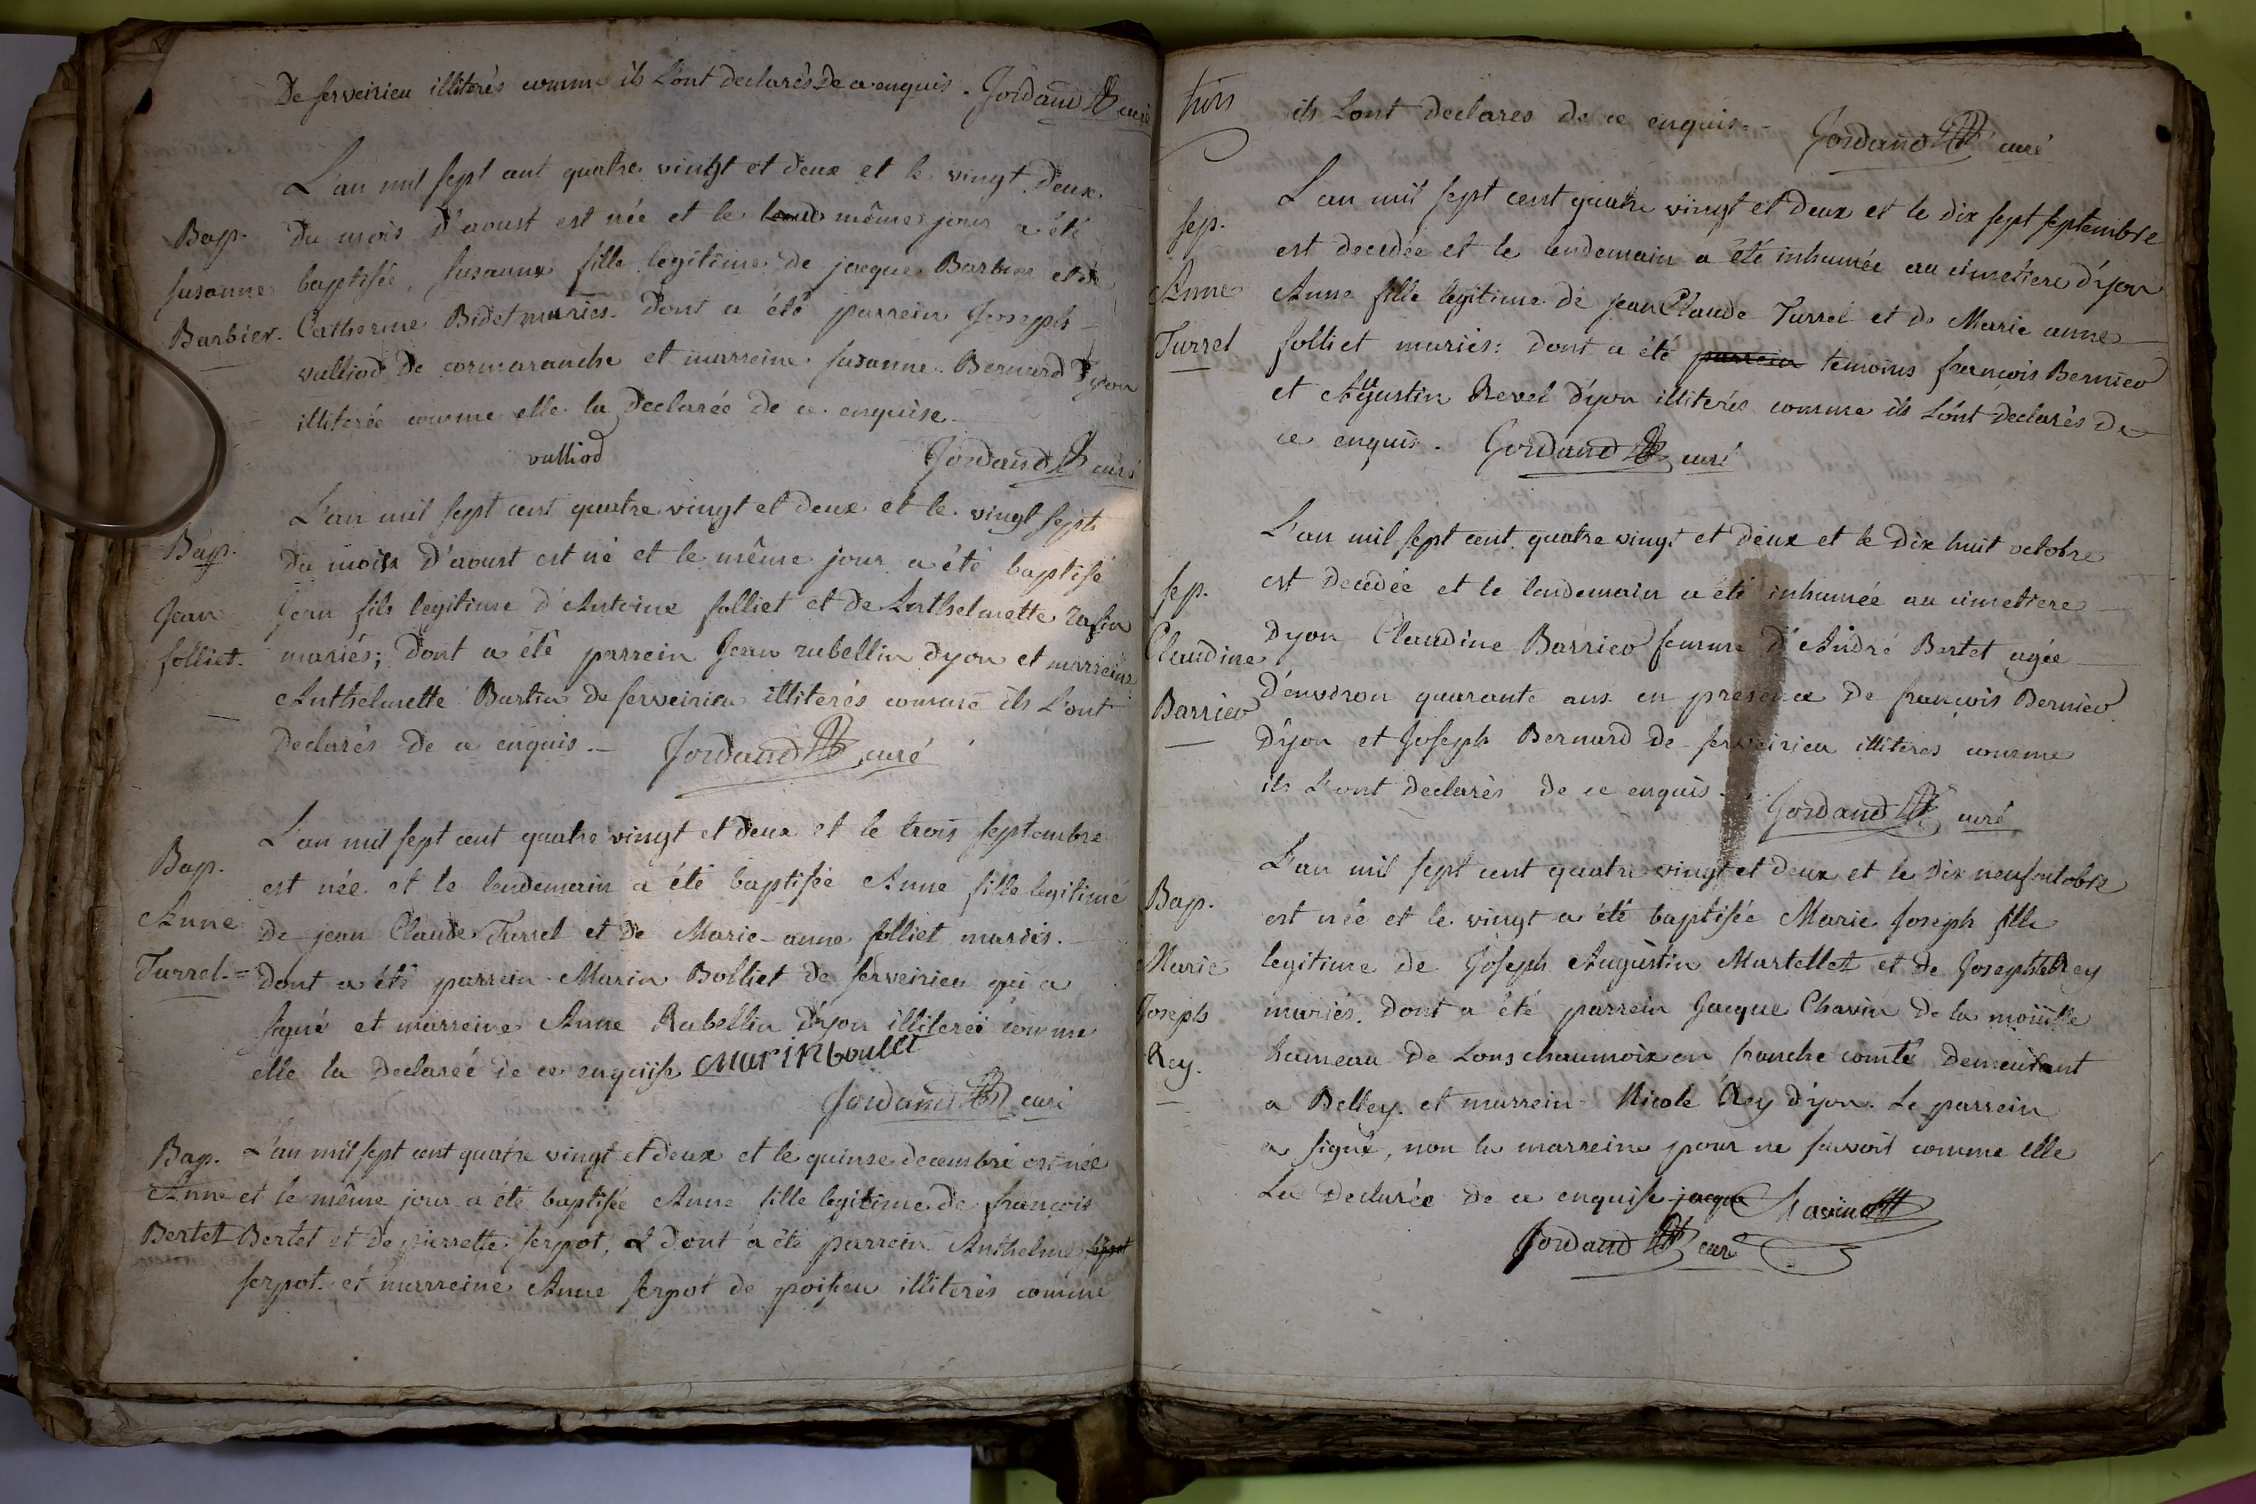 De serveirieu illiterés comme ils L'ont declarés De ce enquis. Jordand curé
L'an mil sept cent quatre vingt et deux et le vingt deux
Bap. Du mois D'aoust est née et le même jour a été
susanne baptisée, susanne fille legitime de jacque Barbier et de
Barbier. Catherine Bidet mariés. Dont a été parrein Joseph
vulliod De cormaranche et marreine susanne Bernard Dyon
illiterée comme elle la Declarée De ce enquise
vulliod
Jordand curé
L'an mil sept cent quatre vingt et deux et le vingt sept
Bap. Du mois D'aoust est né et le même jour a été baptisé
Jean Jean fils legitime d'Antoine folliet et de Anthelmette
folliet. mariés; Dont a été parrein Jean rubellin Dyon et marreine
Anthelmette Bartin de serveirieu illiterés comme ils L'ont
Declarés De ce enquis. Jordand curé
L'an mil sept cent quatre vingt et deux et le trois septembre
Bap. est née et le lendemain a été baptisée Anne fille legitime
Anne De jean Claude Turrel et de Marie-anne folliet mariés.
Turrel.= Dont a été parrein Marin Bolliet de serveirieu qui a
signé et marreine Anne Rubellin D'yon illiterée comme
elle la Declarée De ce enquise Marin boullet
Jordand curé
Bap. L'an mil sept cent quatre vingt et deux et le quinse decembre est née
Anne et le même jour a été baptisée Anne fille legitime de françois
Bertet Bertet et de pierrette serpot, & dont a été parrein Anthelme serpot
serpot et marreine Anne serpot de poisieu illiterés comme
ils Lont Declarés De ce enquis.- Jordand curé
L'an mil sept cent quatre vingt et deux et le dix sept septembre
sep. est decedée et le lendemain a été inhumée au cimetiere d'yon
Anne Anne fille legitime de jean Claude Turrel et de Marie anne
Turrel folliet mariés: dont a été parrein temoins françois Bernier
et Agustin Revel D'yon illiterés comme ils L'ont Declarés De
ce enquis. Jordand curé
L'an mil sept cent quatre vingt et deux et le Dix huit octobre
sep. est decedée et le lendemain a été inhumée au cimetiere
Claudine Dyon Claudine Barrier femme D'André Bertet agée
Barrier D'environ quarante ans en presence De françois Bernier
D'yon et Joseph Bernard de serveirieu illiteres comme
ils L'ont Declarés De ce enquis. Jordand curé
L'an mil sept cent quatre vingt et deux et le Dix neuf octobre
Bap. est née et le vingt a été baptisée Marie Joseph fille
Marie legitime de Joseph Augustin Martellet et de Josephte Rey
Joseph mariés. Dont a été parrein Jacque Chavin De la moüille
Rey. hameau De Lonschaumoix en franche comté Demeurant
a Belley. et marrein Nicole Rey D'yon. Le parrein
a signé, non la marreine pour ne savoir comme elle
La Declarée De ce enquise jacque
Jordand curé